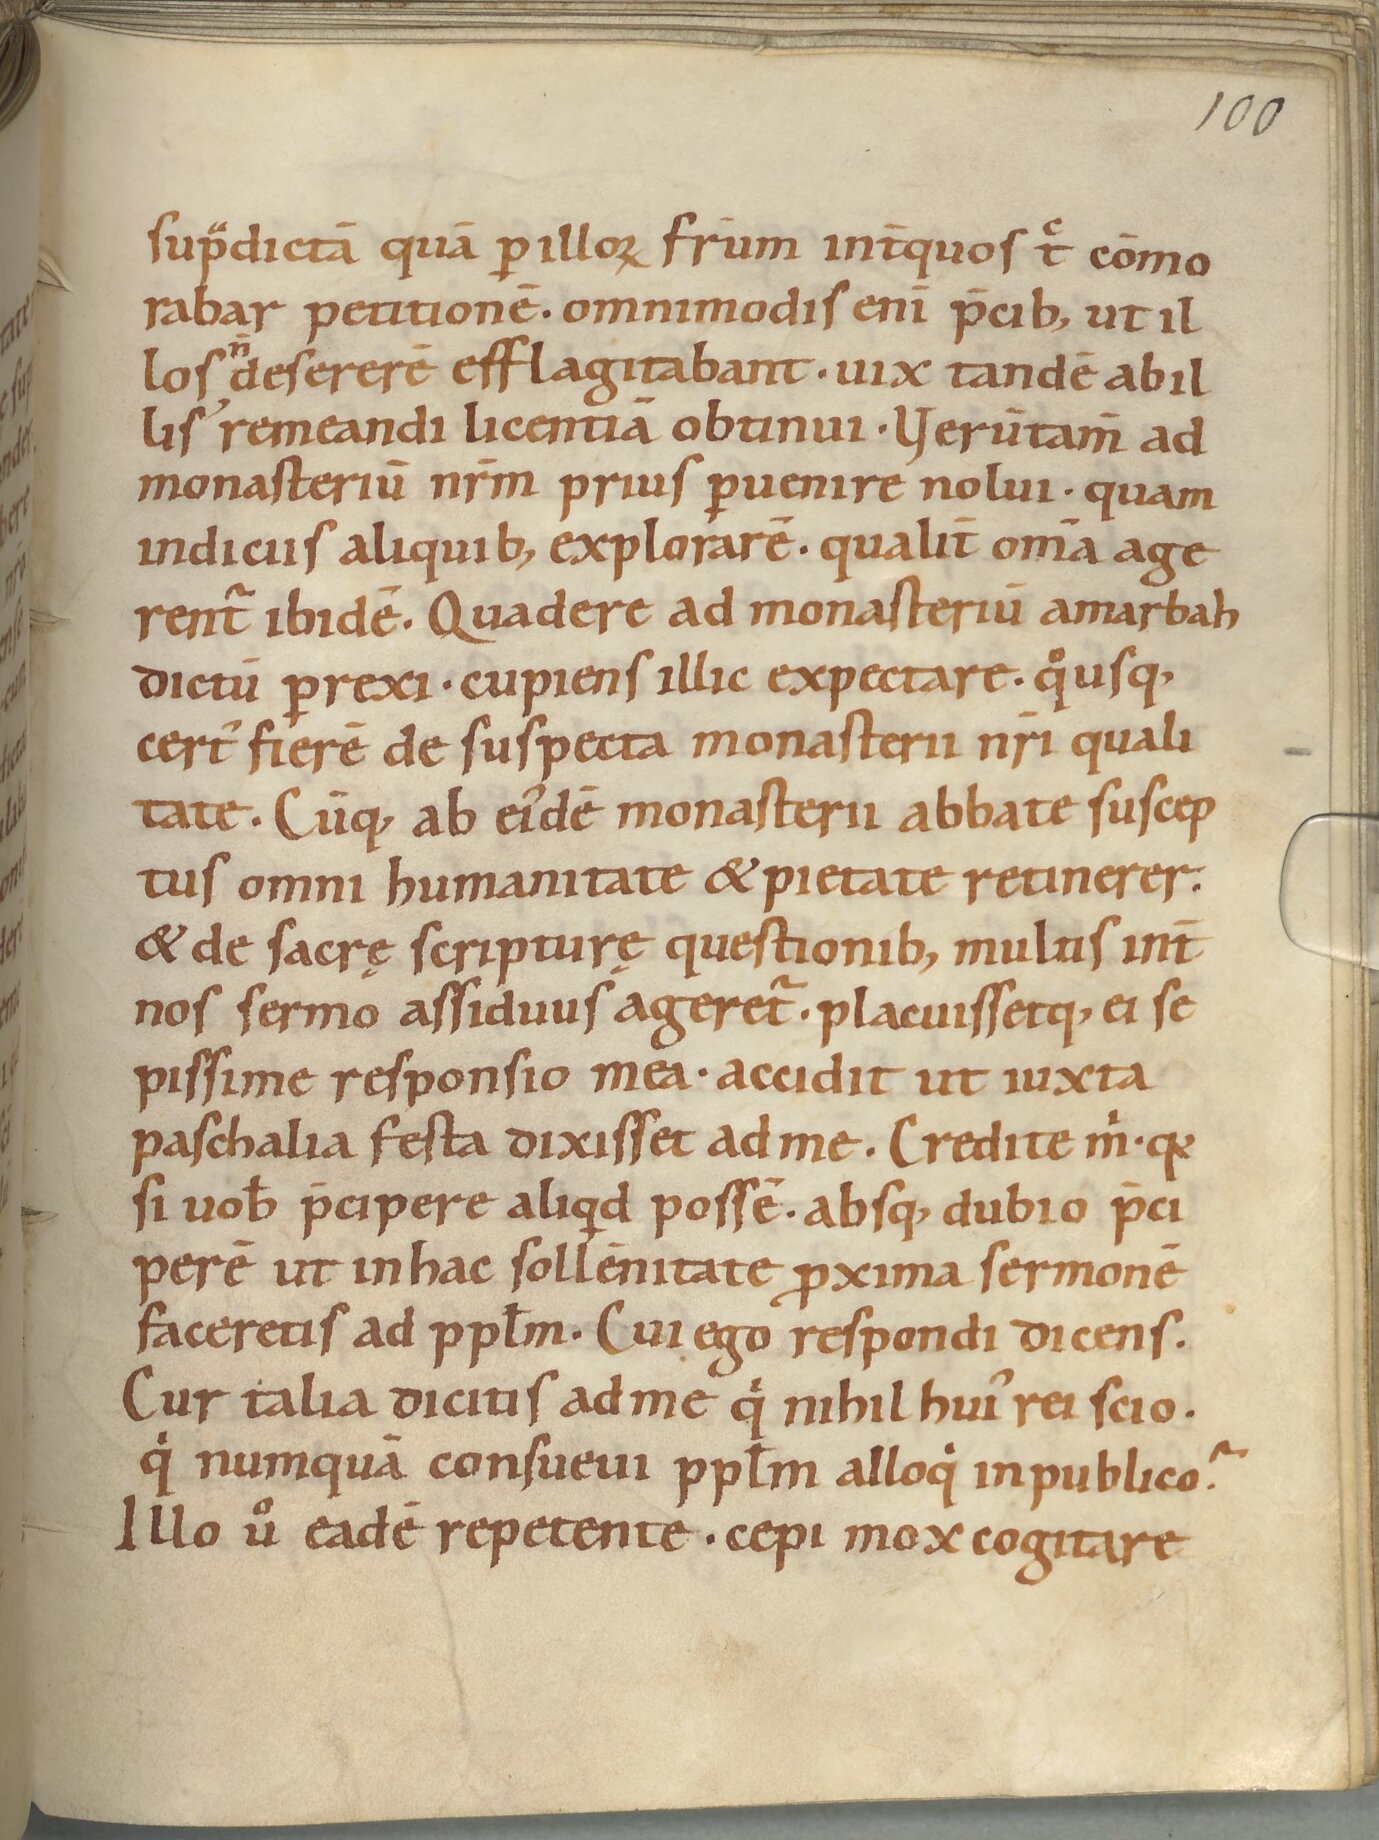 100
sup̄dictā quā ꝑ illoꝝ fr̄um int̄quos tͨ cōmo
rabar petitionē. omnimodis enī p̄cib, ut il
los n̄ desererē efflagitabant. uix tandē ab il
lis remeandi licentiā obtinui. Verūtam̄ ad
monasteriū nr̄m prius ꝑuenire nolui. quam
indiciis aliquib, explorarē. qualit̄ om̄a age
rent᷑ ibidē. Quadere ad monasteriū amarbah
dictū ꝑrexi. cupiens illic expectare. qͦusq,
certꝰ fierē de suspecta monasterii nr̄i quali
tate. Cūq, ab eiꝰdē monasterii abbate suscep
tus omni humanitate & pietate retinerer.
& de sacrę scripturę questionib, multus int̄
nos sermo assiduus ageret᷑. placuissetq, ei se
pissime responsio mea. accidit ut iuxta
paschalia festa dixisset ad me. Credite mͥ. qꝛ
si uob̄ p̄cipere aliqd possē. absq, dubio p̄ci
perē ut in hac sollēnitate ꝓxima sermonē
faceretis ad ppl̄m. Cui ego respondi dicens.
Cur talia dicitis ad me qͥ nihil huiꝰ rei scio.
qͥ numquā consueui ppl̄m alloqͥ in publico?
Illo uͦ eadē repetente. cepi mox cogitare